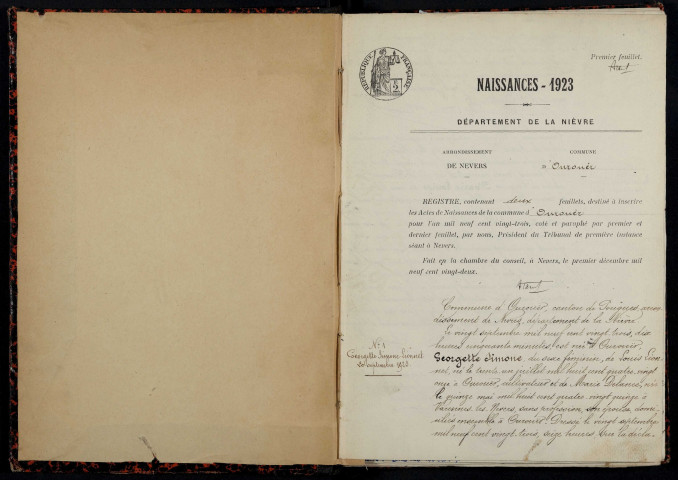 RÉPUBLIQUE FRANÇAISE
2
Premier feuillet.
NAISSANCES - 1923
DÉPARTEMENT DE LA NIÈVRE
ARRONDISSEMENT COMMUNE
DE NEVERS d'Ourouër
REGISTRE, contenant deux feuillets, destiné à inscrire
les Actes de Naissances de la commune d'Ourouër
pour l'an mil neuf cent vingt-trois, coté et paraphé par premier et
dernier feuillet, par nous, Président du Tribunal de première instance
séant à Nevers.
Fait en la chambre du conseil, à Nevers, le premier décembre mil
neuf cent vingt-deux.
Commune d'Ourouër, canton de Pougues, arron
dissement de Nevers, département de la Nièvre
Le vingt septembre mil neuf cent vingt trois, dix
heures cinquante minutes, est née à Ourouër
Nº 1
Georgette Simone
20 septembre 1923
Georgette Simone, du sexe féminin, de Louis
né le trente un juillet mil huit cent quatre vingt
à Ourouër, cultivateur et de Marie née
le quinze mai mil huit cent quatre vingt quinze à
Varennes les Nevers, sans profession, son épouse, domi
ciliés ensemble à Ourouër. Dressé le vingt septembre
mil neuf cent vingt trois, seize heures sur la décla-